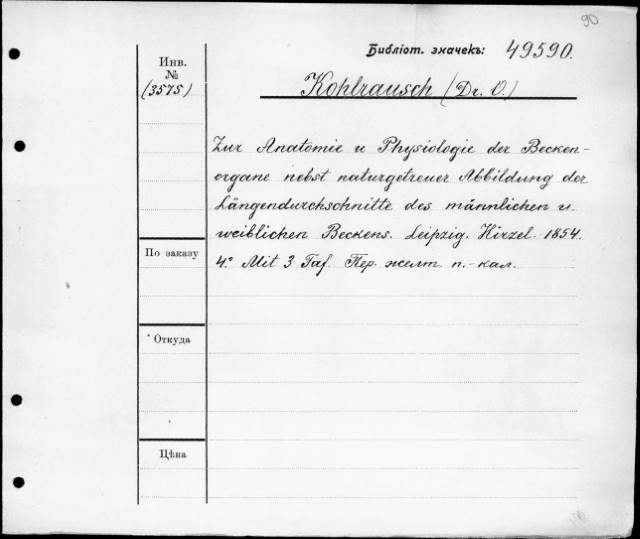 90
Библіот. значекъ: 49590.
Инв.
№
(3575)
Kohlrausch (Dr. O.)
Zur Anatomie u Physiologie der Becken-
organe nebst naturgetreuer Abbildung der
Längendurchschnitte des männlichen u.
weiblichen Beckens. Leipzig. Hirzel. 1854.
4.° Mit 3 Taf. Пер. желт. п.-кал.
По заказу
Откуда
Цѣна